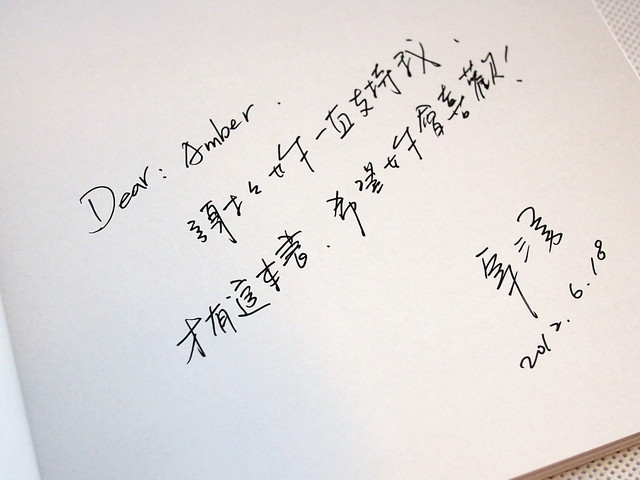 Dear: Amber.
謝謝妳一直支持我.
才有這本書. 希望妳會喜歡!
軍三弟
2012. 6. 18